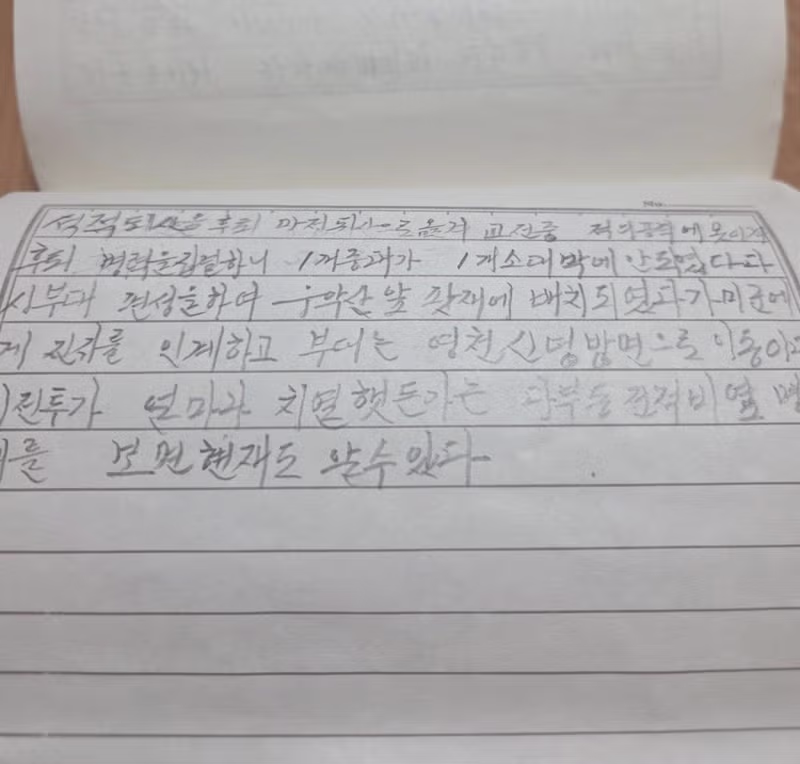 석적되산을 후퇴 마친되산으로 옮겨 교전중 적의공격에 못이겨
후퇴 병력을집결하니 1개중대가 1개소대 박에 안되였다 다
시부대 편성을하여 우악산 앞 팟재에 배치되였다가 미군에
게 진지를 인계하고 부대는 영천 신덩방면으로 이동이다
전투가 얼마나 치열햇든가는 다부동 전적비 옆 명
를 보면 현재도 알수있다